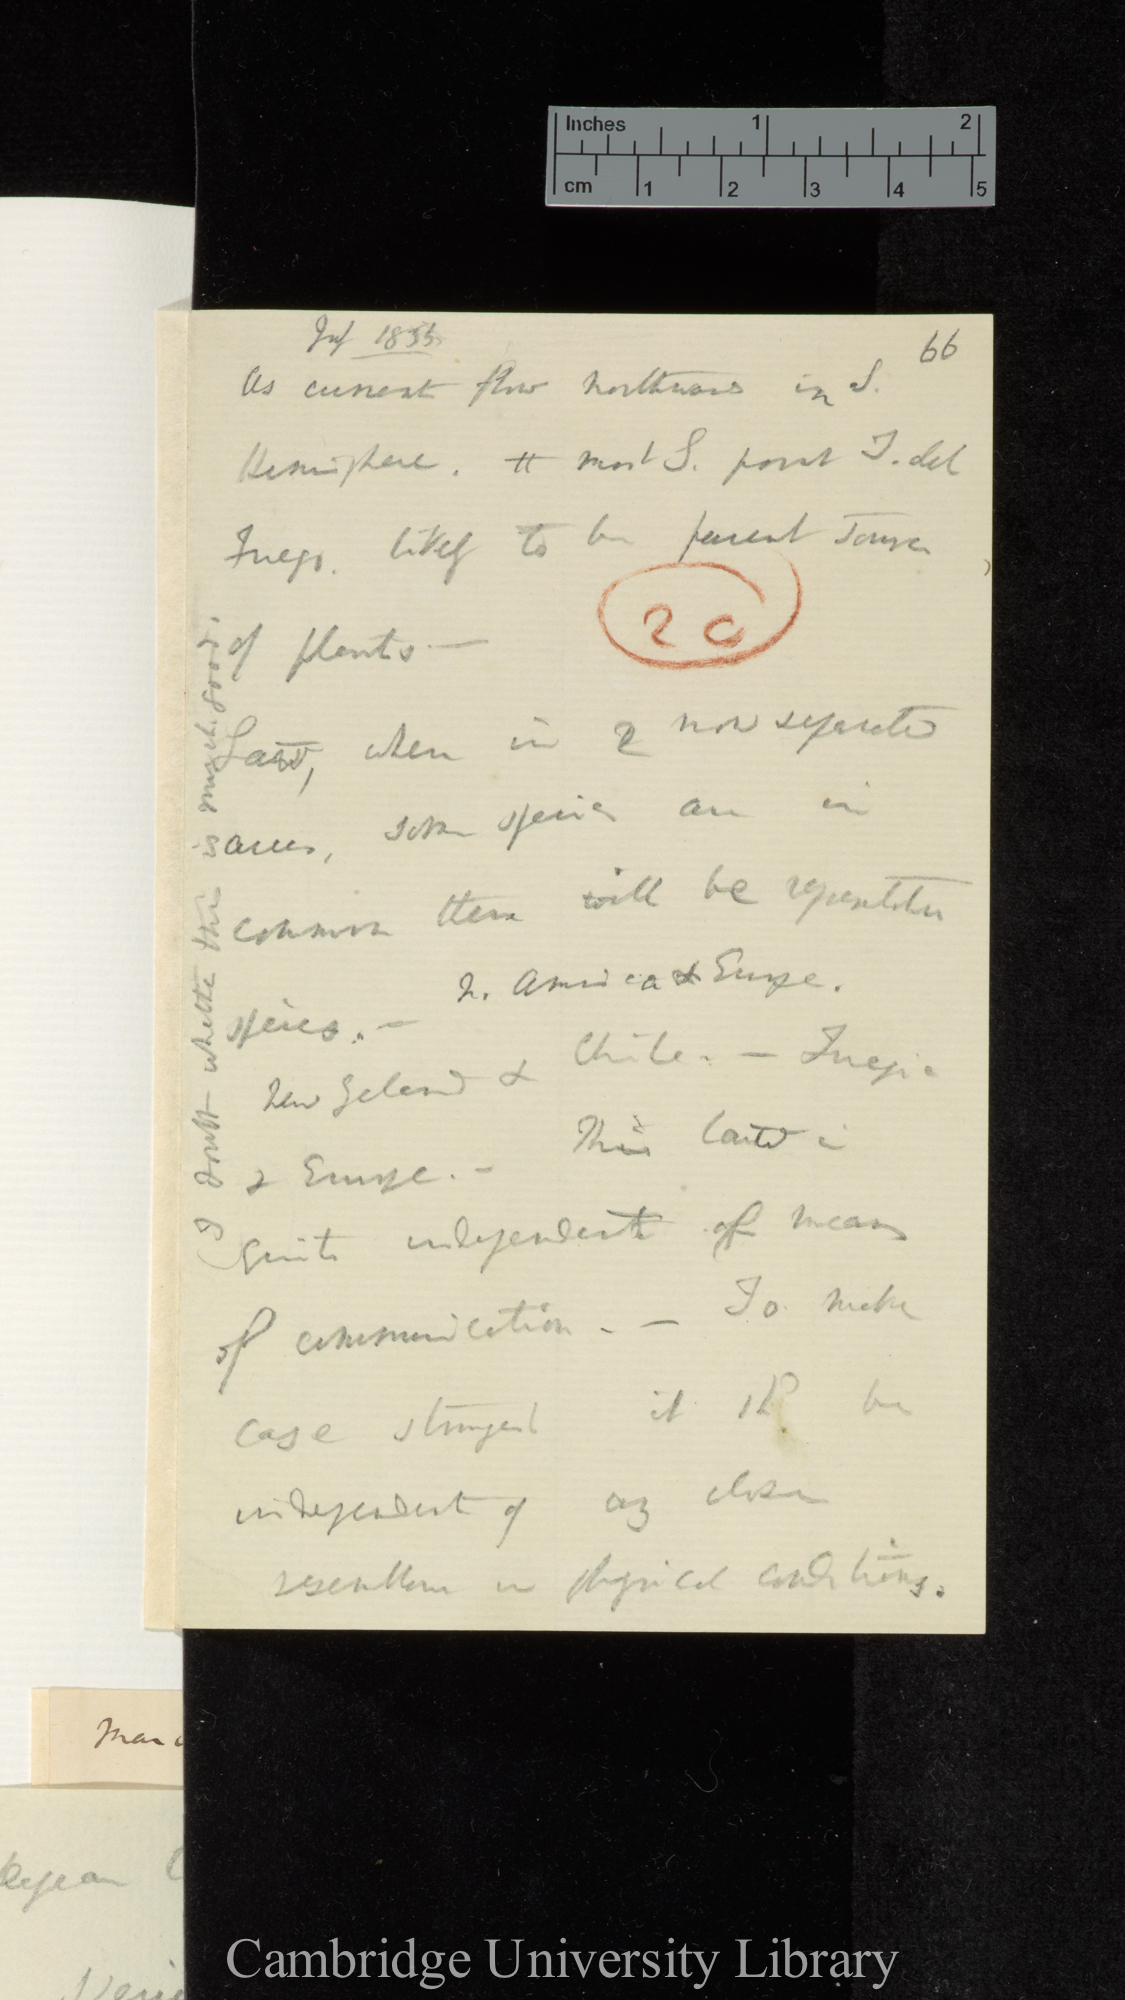 Inches 1 2
cm 1 2 3 4 5
66
1855
As current flow northwards in S.
Hemisphere. tt most S. point T. del
Fuego. likely to be parent source
of plants —
20
Last, when in 2 now separated
areas, some species are in
common there will be representative
species. —
N. America & Europe.
New Zeland & Chile. — Fuegia
& Europe. — This last is
quite independent of means
of communication. — To make
case strongest it shd be
independent of any close
resemblance in physical conditions.
(I doubt whether this is much good.
Cambridge University Library